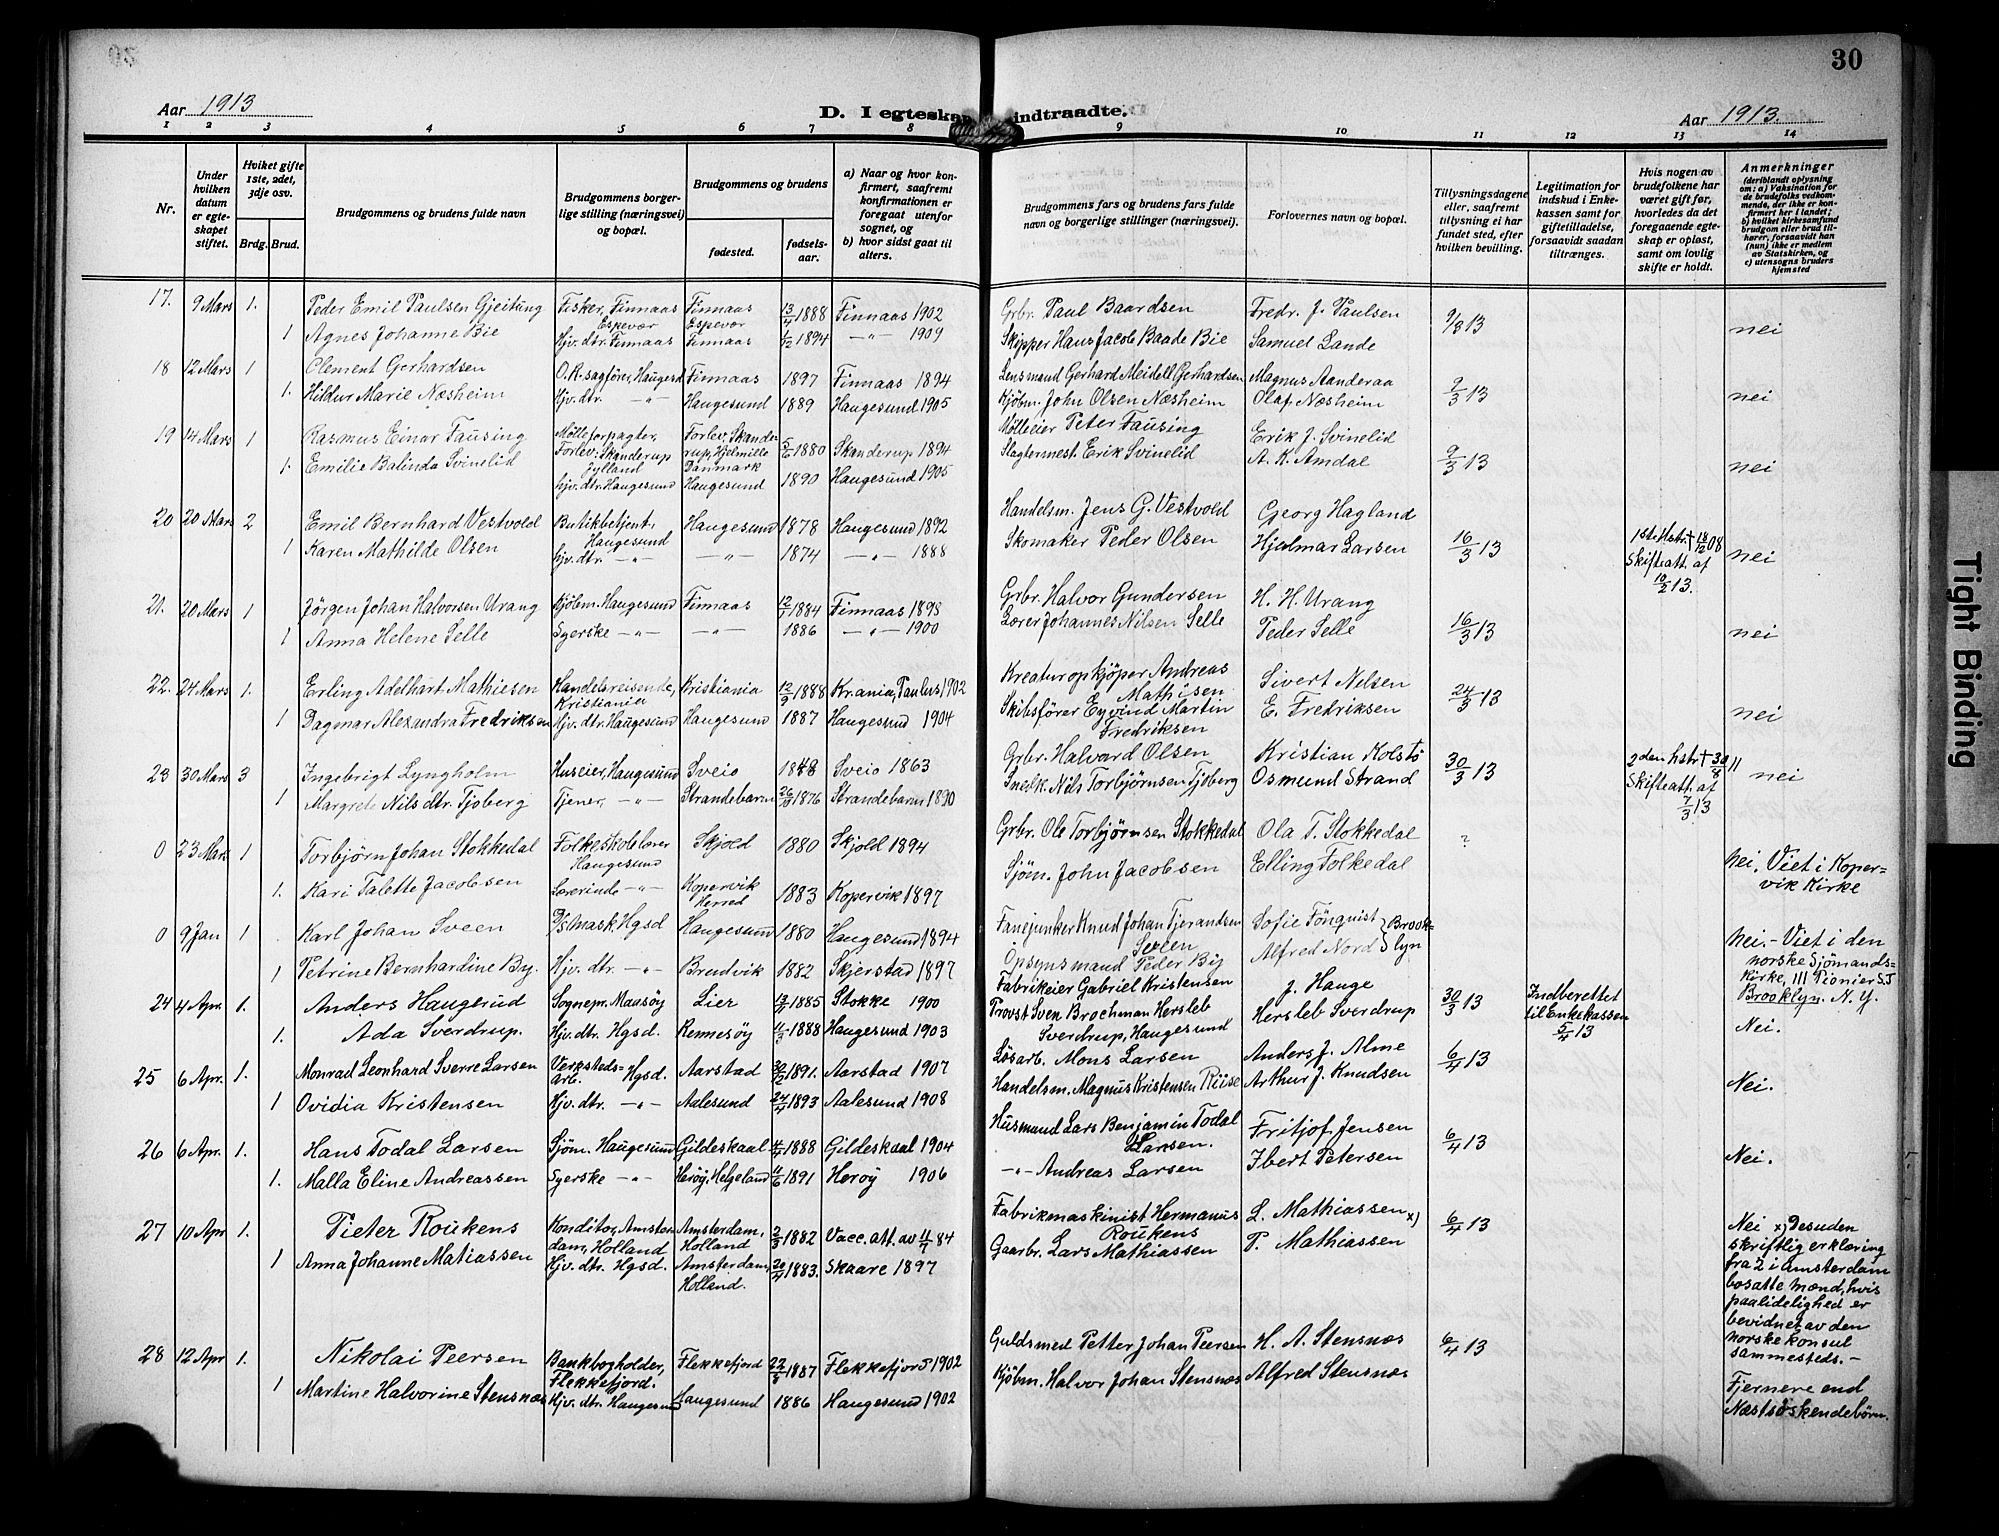 30
Aar 1913
D. I egteskap indtraadte.
Aar 1913.
1 2 3 4 5 6 7 8 9 10 11 12 13 14
Nr.
Under hvilken datum er egteskapet stiftet.
Hvilket gifte 1ste, 2det, 3dje osv.
Brdg. Brud.
Brudgommens og brudens fulde navn
Brudgommens borgerlige stilling (næringsvei) og bopæl.
Brudgommens og brudens
fødested.
fødselsaar.
a) Naar og hvor konfirmert, saafremt konfirmationen er foregaat utenfor sognet, og
b) hvor sidst gaat til alters.
Brudgommens fars og brudens fars fulde navn og borgerlige stillinger (næringsvei).
Forlovernes navn og bopæl.
Tillysningsdagene eller, saafremt tillysning ei har fundet sted, efter hvilken bevilling.
Legitimation for indskud i Enkekassen samt for giftetilladelse, forsaavidt saadan tiltrænges.
Hvis nogen av brudefolkene har været gift før, hvorledes da det foregaaende egteskap er opløst, samt om lovlig skifte er holdt.
Anmerkninger
(deriblandt oplysning om: a) Vaksination for de brudefolks vedkommende, der ikke er konfirmert her i landet; b) hvilket kirkesamfund brudgom eller brud tilhører, forsaavidt han (hun) ikke er medlem av Statskirken, og c) utensogns bruders hjemsted
17. 9 Mars 1. Peder Emil Paulsen Gjeitung Fisker, Finnaas Espevær Finnaas Espevør 13/4 1888 Finnaas 1902 Grbr. Paul Baardsen Fredr. J. Paulsen 9/3 13
1 Agnes Johanne Bie Hjv. dtr. Finnaas Finnaas 1/12 1894 —"— 1909 Skipper Hans Jacob Baade Bie Samuel Lande nei
18 12 Mars 1 Clement Gerhardsen O.R. sagfører, Haugesd Finnaas 1897 Finnaas 1894 Lensmand Gerhard Meidell Gerhardsen Magnus Aanderaa 9/3 13
1. Hildur Marie Næsheim Hjv. dtr. —"— Haugesund 1889 Haugesund 1905 Kjøbm. John Olsen Næsheim Olaf Næsheim nei
19 14 Mars 1 Rasmus Einar Fausing Mølleforpagter, Forlev, Skanderup Jylland Forlev, Skanderup, Hjelmille Danmark 5/6 1880 Skanderup 1894 Mølleeier Peter Fausing Erik J. Svinelid 9/3 13
1. Emilie Balinda Svinelid hjv. dtr. Haugesund Haugesund 1890 Haugesund 1905 Slagtermest. Erik Svinelid A. K. Amdal nei
20 20 Mars 2 Emil Bernhard Vestvold Butikbetjent, Haugesund Haugesund 1878 Haugesund 1892 Handelsm. Jens G. Vestvold Georg Hagland 16/3 13 1ste Hstr. † 18/12 08 Skifteatt. af 10/2 13.
1 Karen Mathilde Olsen hjv. dtr. —"— —"— 1874 —"— 1888 Skomaker Peder Olsen Hjalmar Larsen nei
21. 20 Mars 1 Jørgen Johan Halvorsen Urang Kjøbm. Haugesund Finnaas 12/7 1884 Finnaas 1898 Grbr. Halvor Gundersen H. H. Urang 16/3 13
1 Anna Helene Selle Syerske —"— —"— 1886 —"— 1900 Lærer Johannes Nilsen Selle Peder Selle nei
22. 24 Mars 1. Erling Adelhart Mathiesen Handelsreisende, Kristiania Kristiania 12/9 1888 Kr.ania, Paulus 1902 Kreaturopkjøper Andreas Mathisen Sivert Nilsen 24/3 13
1 Dagmar Alexandra Fredriksen Hjv. dtr. Haugesund Haugesund 1887 Haugesund 1904 Skibsfører Eyvind Martin Fredriksen E. Fredriksen nei
23 30 Mars 3 Ingebrigt Lyngholm Huseier, Haugesund Sveio 1848 Sveio 1863 Grbr. Halvard Olsen Kristian Kolstø 30/3 13 2den hstr † 30/8 11 Skifteatt. af 7/3 13
1 Margrete Nils dtr. Tjoberg Tjener, —"— Strandebarm 1876 Strandebarm 1890 Snedk. Nils Torbjørnsen Tjoberg Osmund Strand nei
0 23 Mars 1 Torbjørn Johan Stokkedal Folkeskolelærer Haugesund Skjold 1880 Skjold 1894 Grbr. Ole Torbjørnsen Stokkedal Ola T. Stokkedal ?
1. Kari Talette Jacobsen Lærerinde —"— Kopervik Herred 1883 Kopervik 1897 Sjøm. John Jacobsen Elling Folkedal nei. Viet i Kopervik Kirke
0 9 Jan 1 Karl Johan Sveen D/S Mask. Hgsd Haugesund 1880 Haugesund 1894 Fanejunker Knud Johan Tjerandsen Sveen Sofie Fönquist } Brooklyn
1 Petrine Bernhardine By. Hjv. dtr. —"— Bruvik 1882 Skjerstad 1897 Opsynsmand Peder By Alfred Nord nei. - Viet i den norske Sjømandskirke, 111 Pionier St Brooklyn. N. Y.
24 4 Apr. 1. Anders Haugerud Sognepr. Maasøy Lier 1885 Stokke 1900 Fabrikeier Gabriel Kristensen J. Hauge 30/3 13 Indberettet til Enkekassen 5/4 13
1. Ada Sverdrup. Hjv. dtr. Hgsd. Rennesøy 11/3 1888 Haugesund 1903 Provst Sven Brochman Hersleb Sverdrup, Haugesund Hersleb Sverdrup Nei.
25 6 Apr. 1. Monrad Leonhard Sverre Larsen Verkstedsarb. Hgsd. Aarstad 30/12 1891. Aarstad 1907 Løsarb. Mons Larsen Anders J. Alme 6/4 13
1 Ovidia Kristensen Hjv. dtr. —"— Aalesund 24/4 1893 Aalesund 1908 Handelsm. Magnus Kristensen Riise Arthur J. Knudsen Nei.
26 6 Apr. 1. Hans Todal Larsen Sjøm. Haugesund Gildeskaal 1888 Gildeskaal 1904 Husmand Lars Benjamin Todal Larsen. Fritjof Jensen 6/4 13
1. Malla Eline Andreassen Syerske —"— Herøy, Helgeland 11/6 1891 Herøy 1906 —"— Andreas Larsen Ibert Petersen Nei.
27 10 Apr 1. Pieter Roukens Konditor, Amsterdam, Holland Amsterdam, Holland 2/3 1882 Vacc. att. av 11/7 84 Fabrikmaskinist Hermanus Roukens L. Mathiassen x) 6/4 13
1 Anna Johanne Matiassen Hjv. dtr. Hgsd. Amsterdam, Holland. 20/4 1883. Skaare 1897 Gaarbr. Lars Mathiassen P. Mathiassen Nei x) Desuden skriftlig erklæring fra 2 i Amsterdam bosatte mænd, hvis paalidelighed er bevidnet av den norske konsul sammesteds. -
28 12 Apr 1. Nikolai Peersen Bankbogholder, Flekkefjord. Flekkefjord 22/5 1887 Flekkefjord 1902 Guldsmed Petter Johan Peersen H. A. Stensnæs 6/4 13
1 Martine Halvorine Stensnæs Hjv. dtr. Haugesund Haugesund 1886 Haugesund 1902 Kjøbm. Halvor Johan Stensnæs Alfred Stensnæs Fjernere end Næstsøskendebørn.
Tight Binding